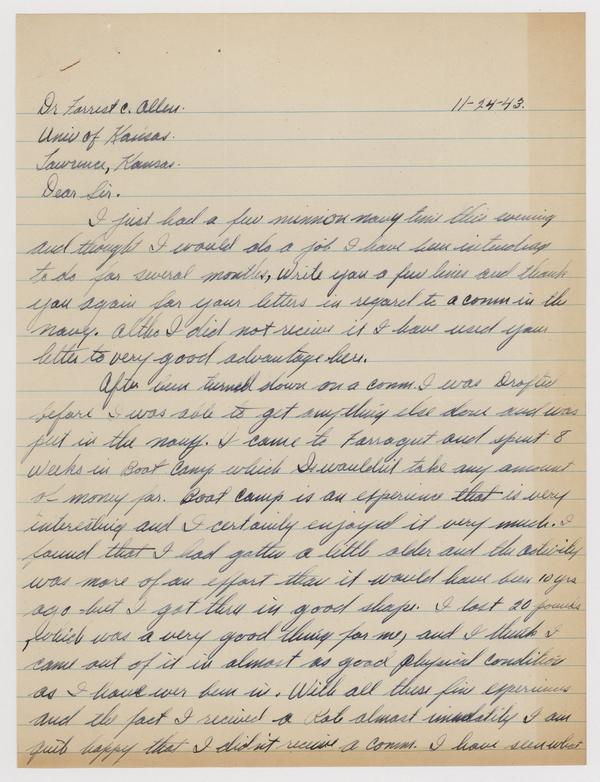 Dr Forrest C. Allen. 11-24-43.
Univ of Kansas.
Lawrence, Kansas.
Dear Sir.
I just had a few minutes navy time this evening
and thought I would do a job I have been intending
to do for several months, write you a few lines and thank
you again for your letters in regard to a comm in the
navy. Altho I did not receive it I have used your
letter to very good advantage here.
After turned down on a comm. I was Drafted
before I was able to get anything else done and was
put in the navy. I came to Farragut and spent 8
weeks in Boot Camp which I wouldn't take any amount
of money for. Boot camp is an experience that is very
interesting and I certainly enjoyed it very much. I
found that I had gotten a little older and the activity
was more of an effort than it would have been 10 yrs
ago but I got thru in good shape. I lost 20 pounds
, which was a very good thing for me, and I think I
came out of it in almost as good physical condition
as I have ever been in. With all these fine experiences
and the fact I recieved a Rate almost immediatly I am
quite happy that I didn't receive a comm. I have seen what